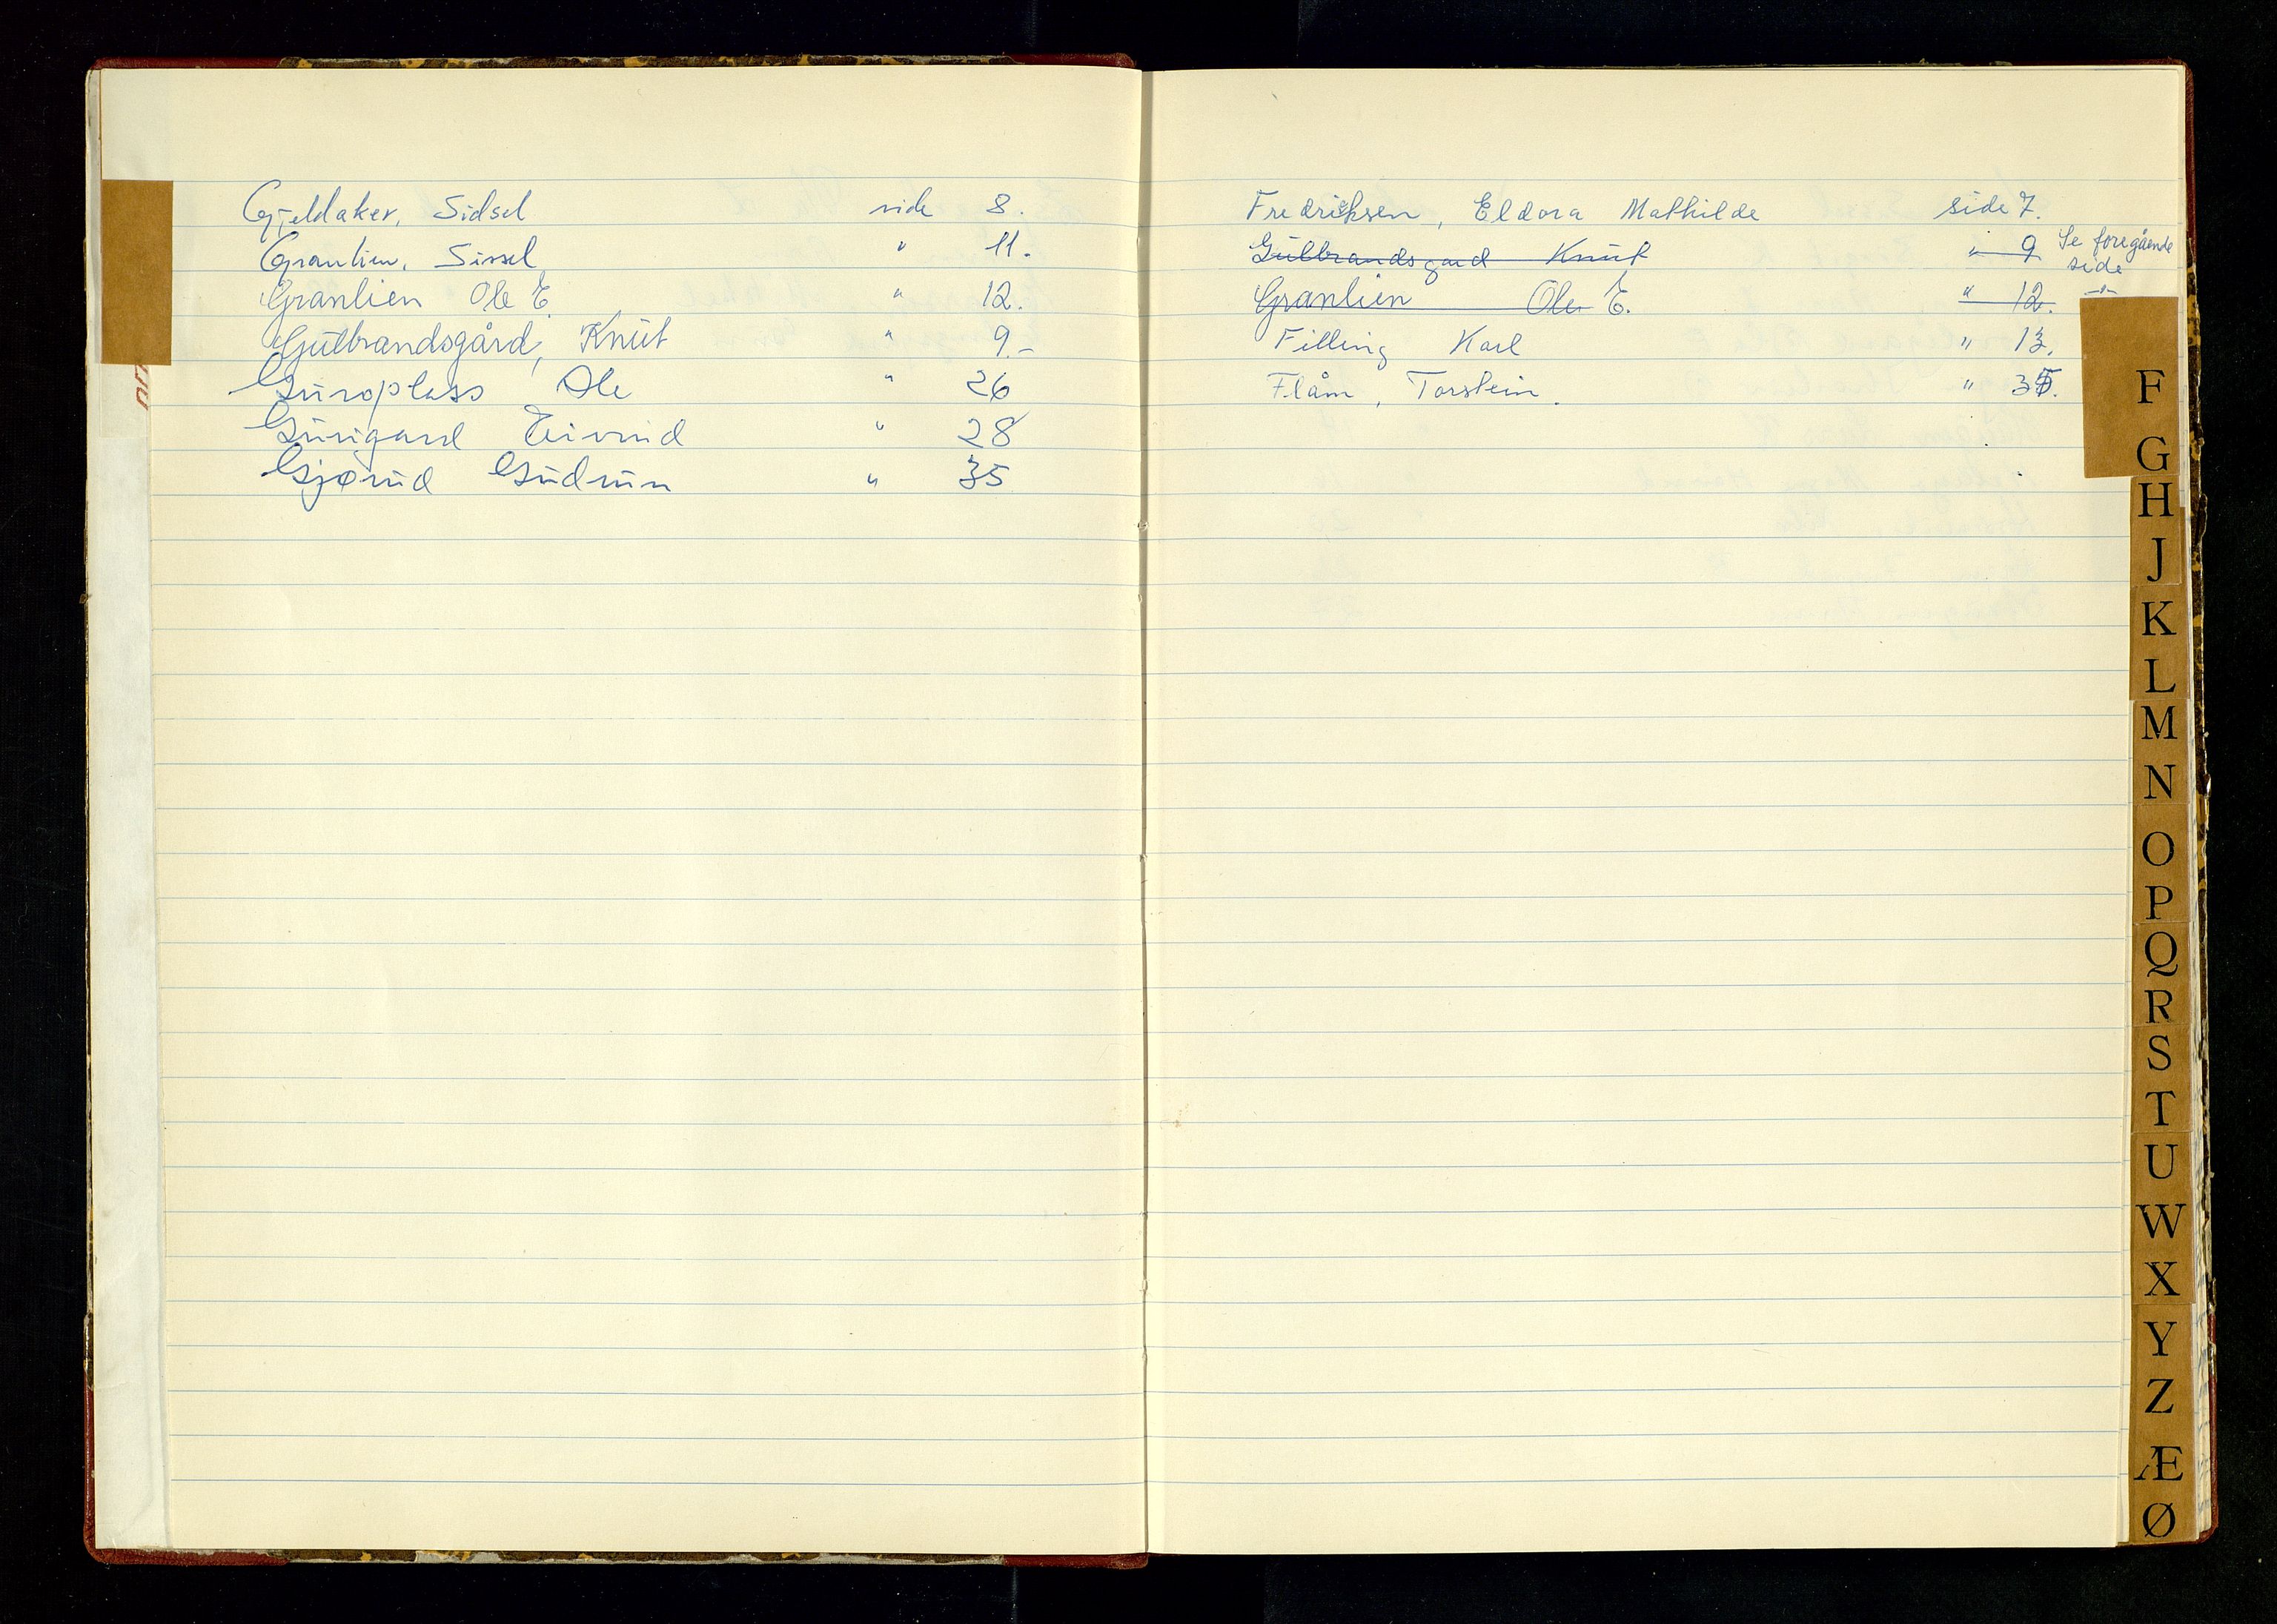 Gjeldaker, Sidsel side 8.
Granlien, Sissel " 11.
Granlien Ole E. " 12.
Gulbrandsgård, Knut " 9.-
Guroplass Ole " 26
Gurigard Eivind " 28
Gjørud Gudrun " 35
Fredriksen, Eldora Mathilde side 7.
Gulbrandsgard Knut " 9 Se foregående side
Granlien Ole E. " 12. -"-
Filling Karl " 13.
Flåm, Torstein. " 35.
F
G
H
J
K
L
M
N
O
P
Q
R
S
T
U
W
X
Y
Z
Æ
Ø